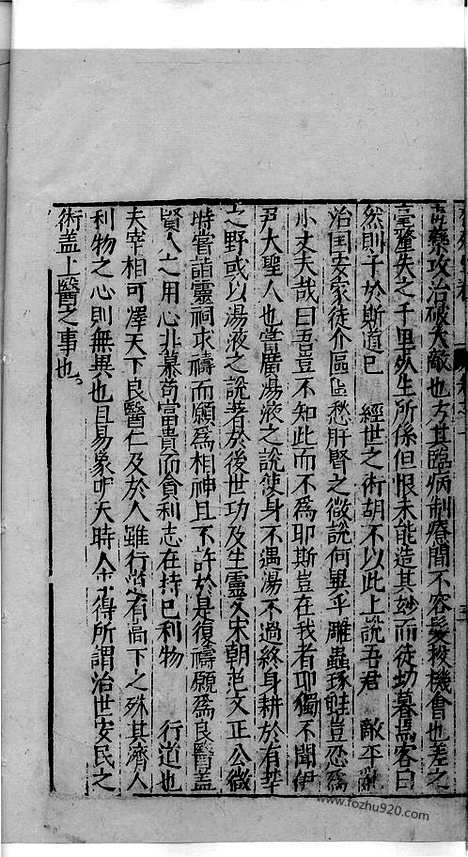 毒藥攻治破大敵也方其臨病制療間不容髮秘機會也差之
毫釐失之千里死生所係但恨未能造其妙而徒切慕焉客曰
然則子於斯道已 經世之術胡不以此上說吾君 敵平亂
治国安家徒介區區愁肝腎之微說何異乎雕蟲琢 豈忍為
小丈夫哉曰吾豈不知此而不為耶斯豈在我者耶獨不聞伊
尹大聖人也嘗廣湯液之說使身不遇湯不過終身耕於有莘
之野或以湯液之說著於後世功及生靈又宋朝范文正公微
時嘗詣靈祠求禱而願為相神且不許於是復禱願為良醫蓋
賢人之用心非慕苟富貴而貪利志在持己利物 行道也
夫宰相可澤天下良醫仁及於人雖行道有高下之殊其濟人
利物之心則無異也且易象 天時人 得所謂治世安民之
術蓋上醫之事也。
www.fozhu920.com